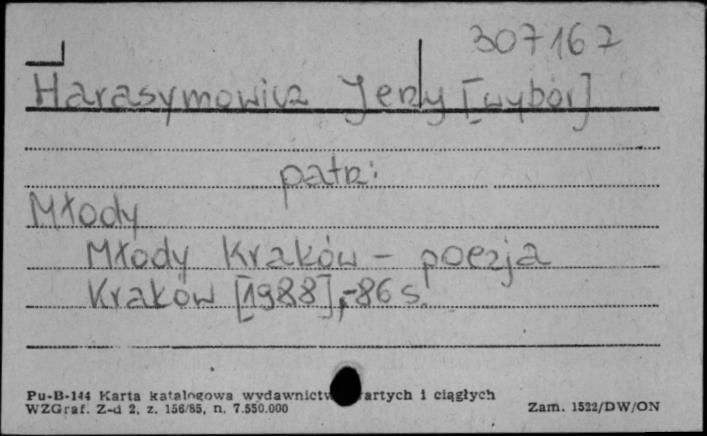 307167
Harasymowicz Jerzy [wybór]
patrz:
Młody
Młody Kraków - poezja
Kraków [1988],-86 s.
Pu-B-144 Karta katalogowa wydawnictw zwartych i ciągłych
WZGraf. Z-d 2, z. 156/85, n. 7.550.000
Zam. 1522/DW/ON